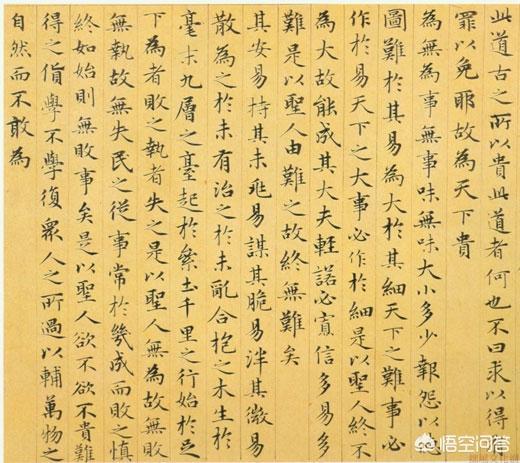 此道古之所以貴此道者何也不曰求以得有
罪以免耶故為天下貴
為無為事無事味無味大小多少報怨以德
圖難於其易為大於其細天下之難事必
作於易天下之大事必作於細是以聖人終不
為大故能成其大夫輕諾必寡信多易多
難是以聖人由難之故終無難矣
其安易持其未兆易謀其脆易泮其微易
散為之於未有治之於未亂合抱之木生於
毫末九層之臺起於絫土千里之行始於足
下為者敗之執者失之是以聖人無為故無敗
無執故無失民之從事常於幾成而敗之慎
終如始則無敗事矣是以聖人欲不欲不貴難
得之貨學不學復眾人之所過以輔萬物之
自然而不敢為
悟空问答